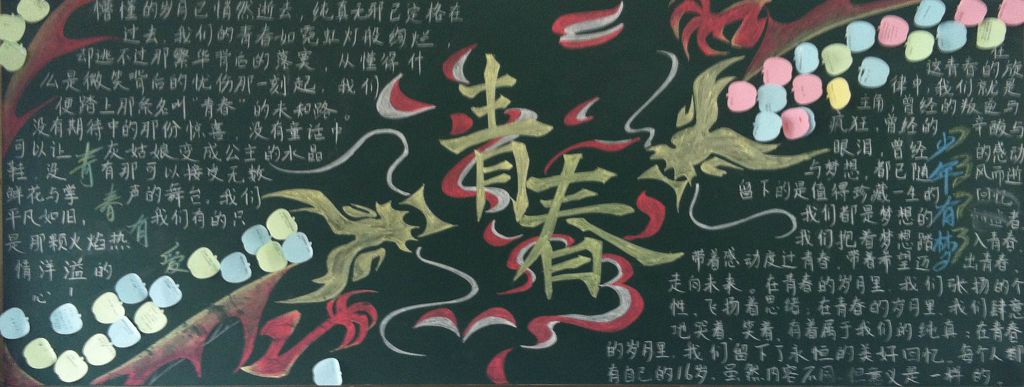 懵懂的岁月已悄然逝去，纯真无邪已定格在
过去，我们的青春如霓虹灯般绚烂，
却逃不过那繁华背后的落寞，从懂得什
么是微笑背后的忧伤那一刻起，我们
便踏上那条名叫“青春”的未知路。
没有期待中的那份惊喜，没有童话中
可以让灰姑娘变成公主的水晶
鞋，没有那可以接受无数
鲜花与掌声的舞台。我们
平凡如旧，我们有的只
是那颗火焰热
情洋溢的
心！
青春有爱
青春
在
这青春的旋
律中，我们就是
主角，曾经的叛逆与
疯狂，曾经的辛酸与
眼泪，曾经的感动
与梦想，都已随风而逝
留下的是值得珍藏一生的回忆
我们都是梦想的追逐者
我们抱着梦想踏入青春
带着感动度过青春，带着希望迈出青春，
走向未来。在青春的岁月里，我们张扬的个
性，飞扬着思绪；在青春的岁月里，我们肆意
地哭着，笑着，有着属于我们的纯真；在青春
的岁月里，我们留下了永恒的美好回忆。每个人都
有自己的16岁，虽然内容不同，但意义是一样的。
少年有梦